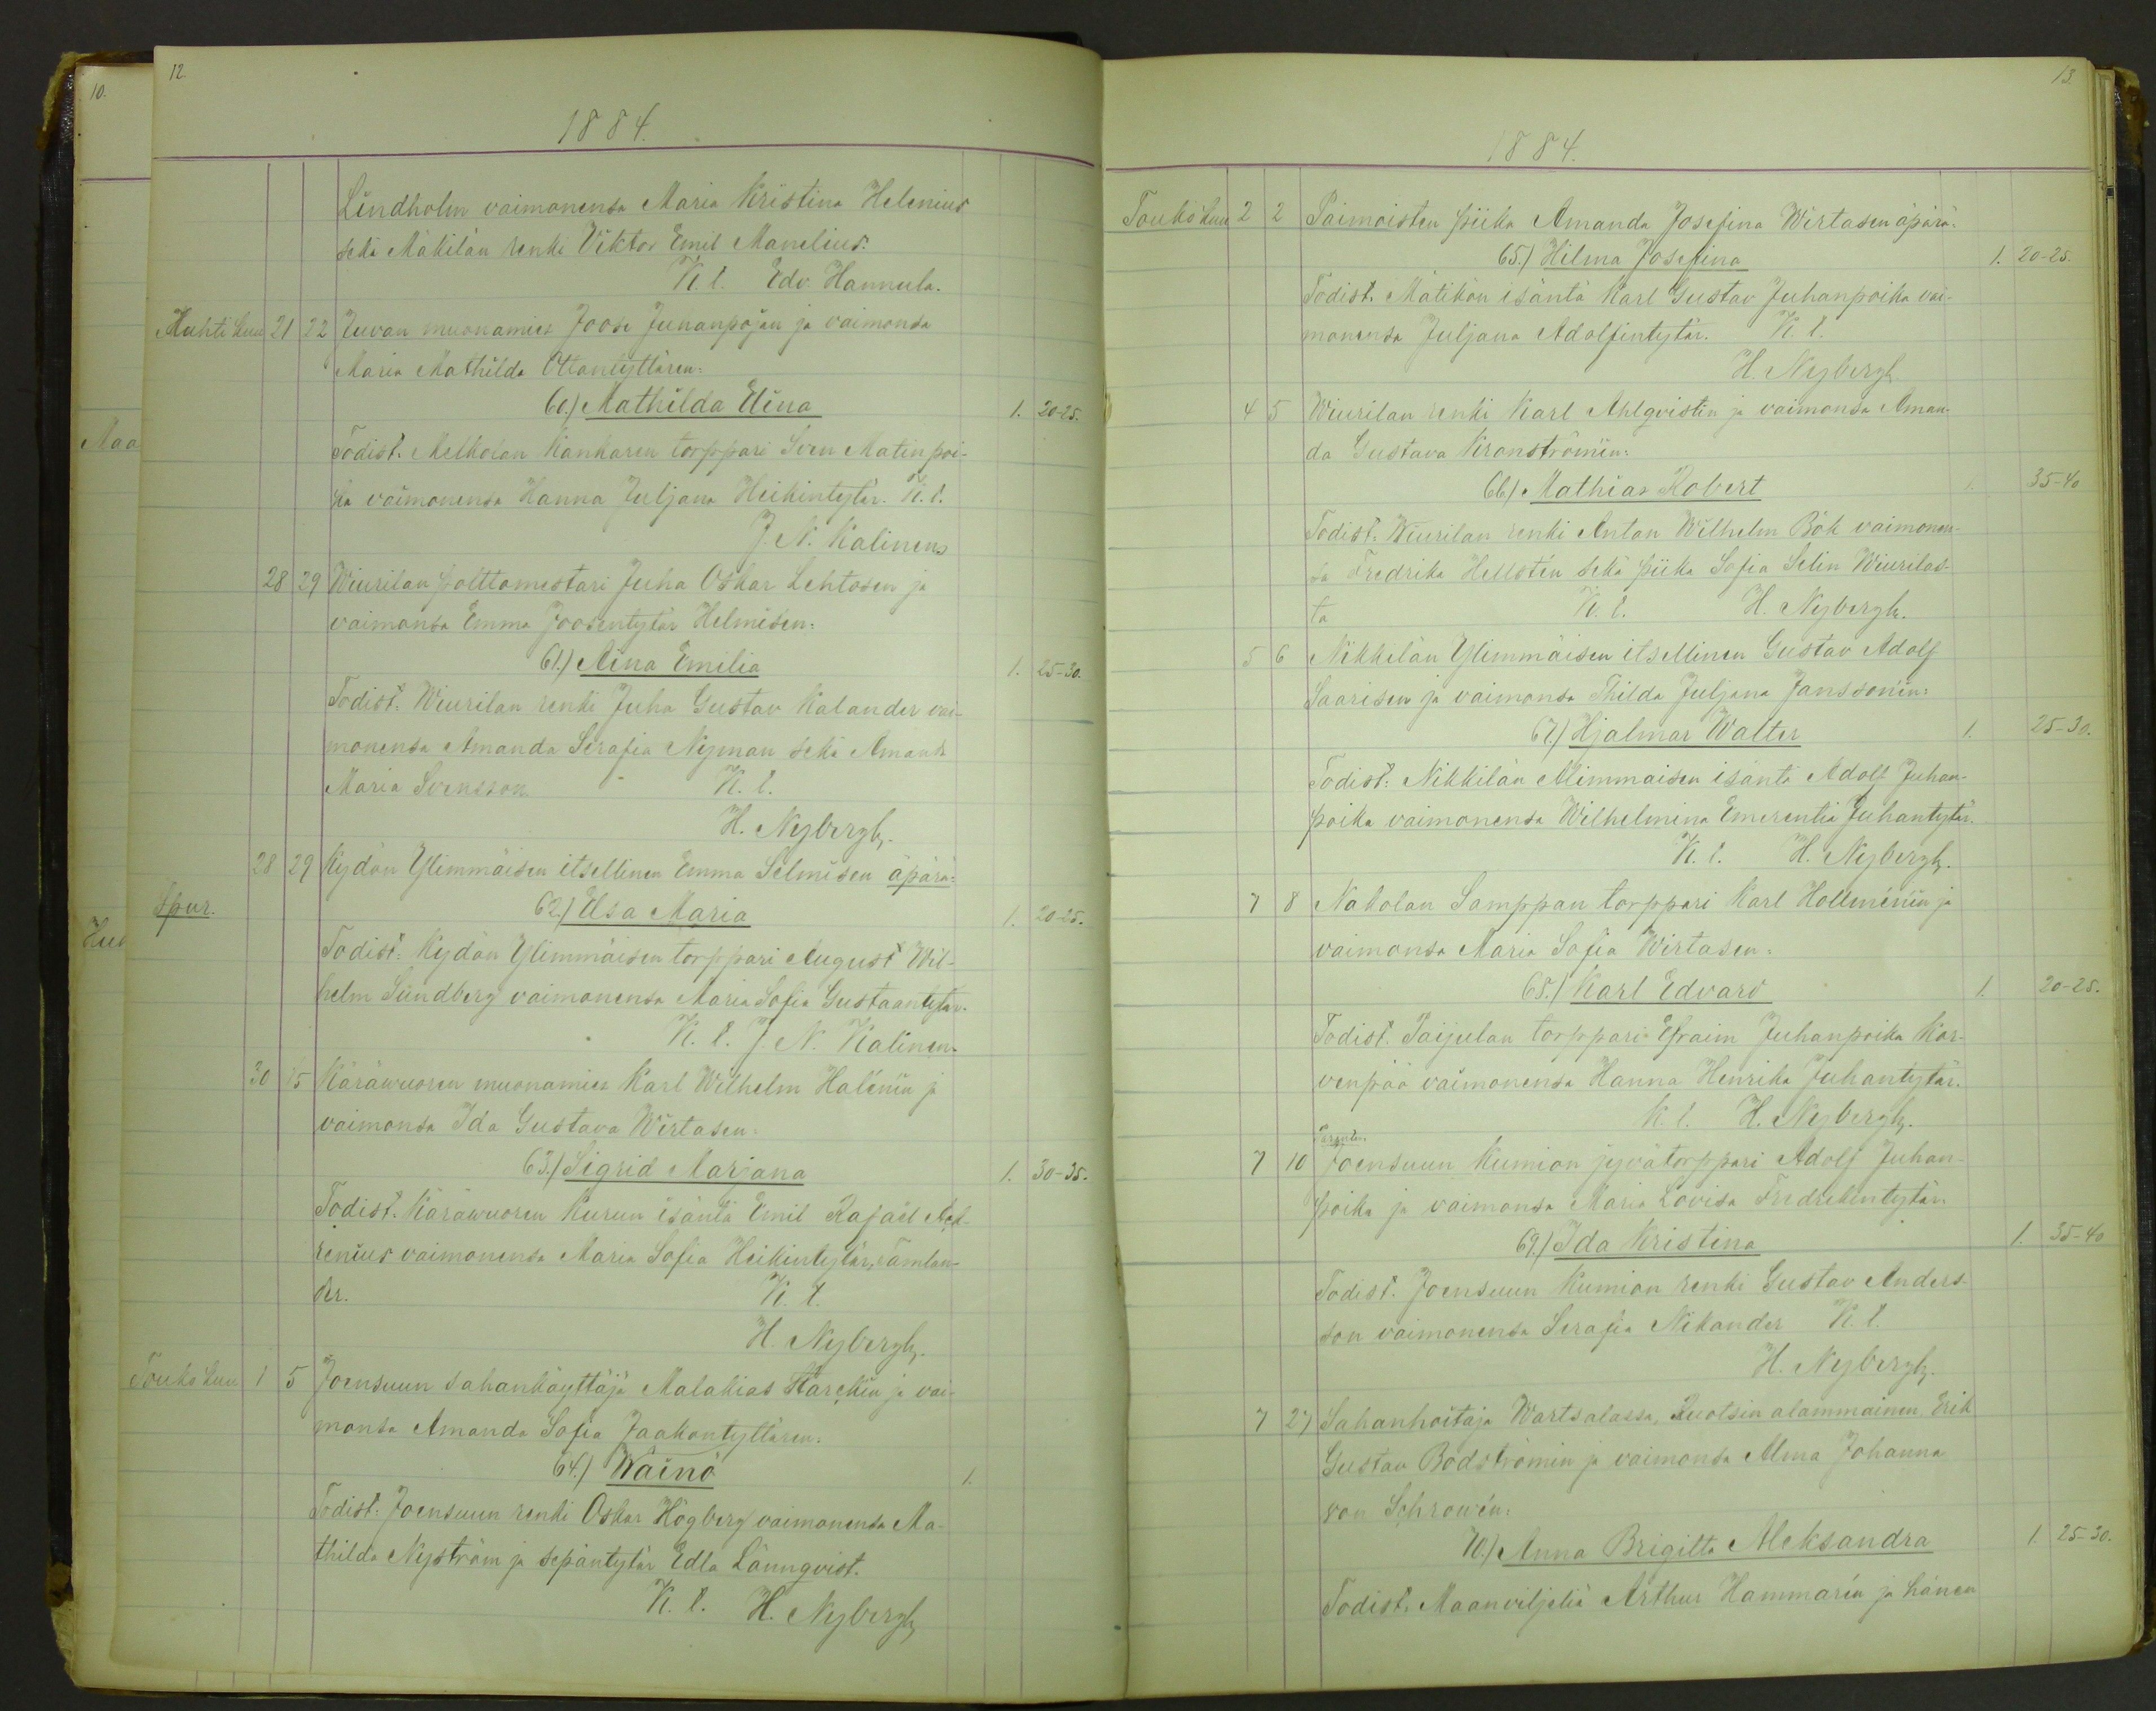 10.
Maa
12.
1884.
Lindholm vaimonensa Maria Kristina Helenius
sekä Mäkilän renki Viktor Emil Manelius.
K. l. Edv. Hannula.
Huhti kuu 21 22 Juvan muonamies Joose Juhanpojan ja vaimonsa
Maria Mathilda Ottantyttären:
60.) Mathilda Elina 1. 20-25.
Todist. Melkolan Kankaren torppari Sven Matinpoi-
ka vaimonensa Hanna Juljana Heikintytär. K. l.
J. N. Kalinen
28 29 Wiurilan polttomestari Juha Oskar Lehtosen ja
vaimonsa Emma Joosentytär Helmisen:
61.) Aina Emilia 1. 25-30.
Todist: Wiurilan renki Juha Gustav Kalander vai-
monensa Amanda Serafia Nyman sekä Amanda
Maria Svensson K. l.
H. Nybergh.
28 29 Kydön Ylimmäisen itsellinen Emma Selmisen äpärä:
Spur. 62.) Elsa Maria 1. 20-25.
Todist: Kydön Ylimmäisen torppari August Wil-
helm Sundberg vaimonensa Maria Sofia Gustaantytär.
K. l. J. N. Kalinen.
30 15 Käräwuoren muonamies Karl Wilhelm Halénin ja
vaimonsa Ida Gustava Wirtasen:
63.) Sigrid Marjana 1. 30-35.
Todist. Käräwuoren Kurun isäntä Emil Rafaël
renius vaimonensa Maria Sofia Heikintytär,
K. l.
H. Nybergh.
Touko kuu 1 5 Joensuun sahankäyttäjä Malakias Starckin ja vai-
monsa Amanda Sofia Jaakontyttären.
64.) Wäinö 1.
Todist: Joensuun renki Oskar Högberg vaimonensa Ma-
thilda Nyström ja sepäntytär Edla Lönnqvist.
K. l. H. Nybergh
13.
1884.
Touko kuu 2 2 Paimoisten piika Amanda Josefina Wirtasen äpärä:
65.) Hilma Josefina 1. 20-25.
Todist. Mätikön isäntä Karl Gustav Juhanpoika vai-
monensa Juljana Adolfintytär. K. l.
H. Nybergh
4 5 Wiurilan renki Karl Ahlqvistin ja vaimonsa Aman-
da Gustava Kronströmin:
66.) Mathias Robert 1. 35-40
Todist: Wiurilan renki Anton Wilhelm Böh vaimonen-
sa Fredrika Hellstén sekä piika Sofia Selin Wiurilas-
ta K. l. H. Nybergh.
5 6 Nikkilän Ylimmäisen itsellinen Gustav Adolf
Saarisen ja vaimonsa Thilda Juljana Janssonin:
67.) Hjalmar Walter 1. 25-30.
Todist: Nikkilän Alimmaisen isäntä Adolf Juhan-
poika vaimonensa Wilhelmina Emerentia Juhantytär.
K. l. H. Nybergh.
7 8 Nakolan Samppan torppari Karl Hollménin ja
vaimonsa Maria Sofia Wirtasen:
68.) Karl Edvard 1. 20-25.
Todist. Paijulan torppari Efraim Juhanpoika Kor-
venpää vaimonensa Hanna Henrika Juhantytär.
K. l. H. Nybergh.
7 10 Joensuun Kumion jyvätorppari Adolf Juhan-
poika ja vaimonsa Maria Lovisa Fredrikintytär.
69.) Ida Kristina 1. 35-40
Todist. Joensuun Kumion renki Gustav Anders-
son vaimonensa Serafia Nikander K. l.
H. Nybergh.
7 27 Sahanhoitaja Wartsalassa, Ruotsin alammainen, Erik
Gustav Bodströmin ja vaimonsa Alma Johanna
von Schrowén:
70.) Anna Brigitta Aleksandra 1. 25-30.
Todist. Maanviljeliä Arthur Hammarén ja hänen